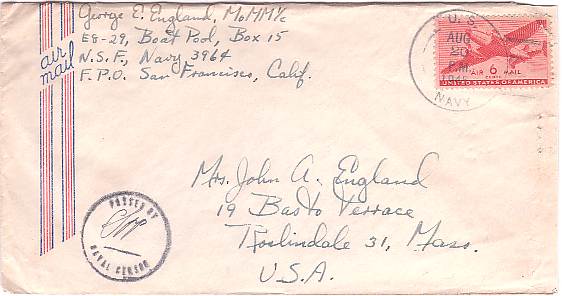 George E. England, MoMM1/c
E8-29, Boat Pool, Box 15
N.S.F., Navy 3964
F.P.O. San Francisco, Calif.
air mail
U.S.
AUG
20
P.M.
NAVY
AIR 6 MAIL
CENTS
UNITED STATES OF AMERICA
Mrs. John A. England
19 Basto Terrace
Roslindale 31, Mass.
U.S.A.
PASSED BY
NAVAL CENSOR